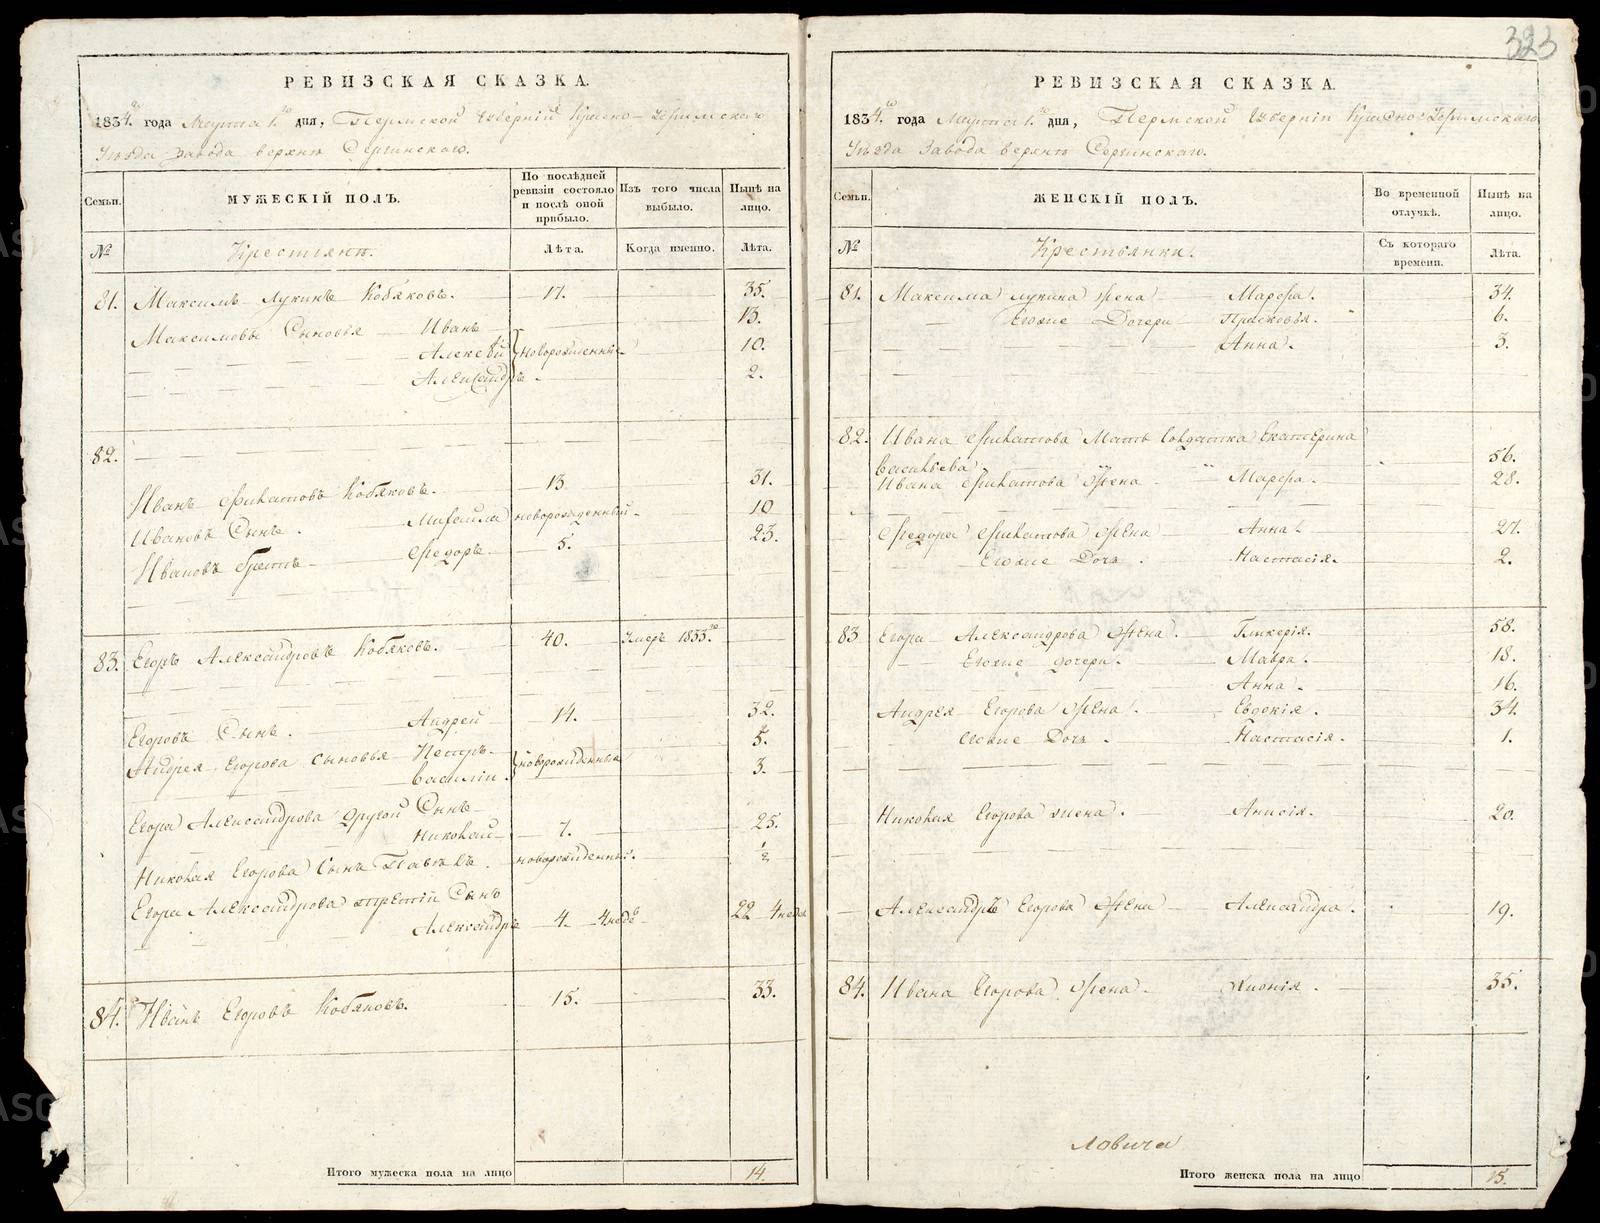 323
РЕВИЗСКАЯ СКАЗКА.
1834го года Марта 1го дня, Пермской Губерніи Красно-Уфимскаго
Уѣзда Завода верхне Сергинскаго.
Семьи.
МУЖЕСКІЙ ПОЛЪ.
По послѣдней ревизіи состояло и послѣ оной прибыло.
Изъ того числа выбыло.
Нынѣ на лицо.
№
Крестьяне.
Лѣта.
Когда именно.
Лѣта.
81. Максимъ Лукинъ Кобяковъ. 17. 35.
Максимовы Сыновья Иванъ 13.
Алексѣй новорожденные 10.
Александръ 2.
82.
Иванъ Филатовъ Кобяковъ. 13 31.
Ивановъ Сынъ. Михайла новорожденный. 10
Ивановъ братъ Федоръ 5. 23.
83. Егоръ Александровъ Кобяковъ. 40. Умеръ 1833го
Егоровъ Сынъ. Андрей 14. 32.
Андрея Егорова сыновья Петръ 5.
Василій новорожденные 3.
Егора Александрова другой Сынъ
Николай 7. 25.
Николая Егорова Сынъ Павелъ. новорожденный. ½
Егора Александрова третій Сынъ
Александръ 4. 4 недѣ 22 4 неде
84. Иванъ Егоровъ Кобяковъ. 15. 33.
Итого мужеска пола на лицо 14.
РЕВИЗСКАЯ СКАЗКА.
1834го года Марта 1го дня, Пермской Губерніи Красно-Уфимскаго
Уѣзда Завода верхне Сергинскаго.
Семьи.
ЖЕНСКІЙ ПОЛЪ.
Во временной отлучкѣ.
Нынѣ на лицо.
№
Крестьянки.
Съ котораго времени.
Лѣта.
81. Максима Лукина жена Марфа. 34.
Егоже Дочери Прасковья. 6.
Анна. 3.
82. Ивана Филатова Мать Солдатка Екатерина
Васильева 56.
Ивана Филатова Жена Марфа. 28.
Федора Филатова Жена Анна. 27.
Егоже Дочь. Настасія. 2.
83 Егора Александрова Жена. Гликерія. 58.
Егоже дочери. Мавра. 18.
Анна. 16.
Андрея Егорова Жена. Евдокія. 34.
Егоже Дочь. Настасія. 1.
Николая Егорова жена. Анисія. 20.
Александръ Егорова Жена Александра. 19.
84. Ивана Егорова Жена. Хионія. 35.
Ловича
Итого женска пола на лицо 15.